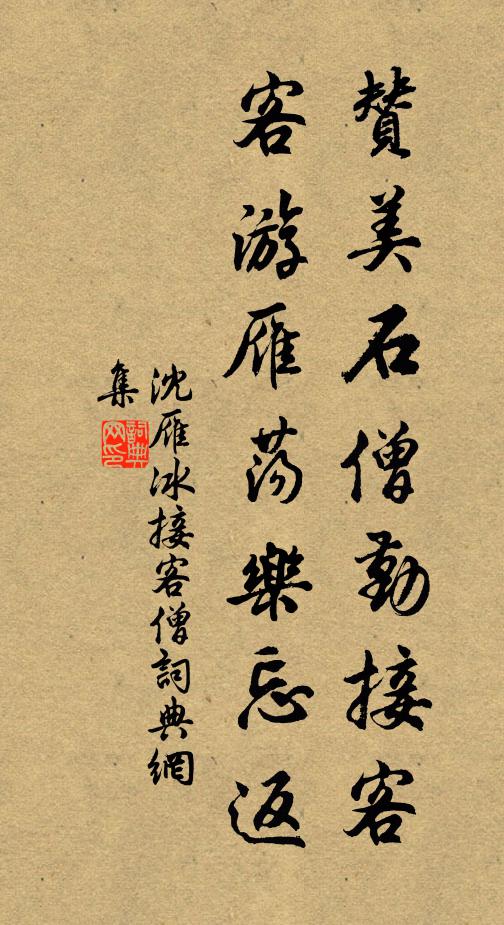 贊美石僧勤接客
客游雁蕩樂忘返
沈雁冰接客僧詞典網
集
詞典
网印